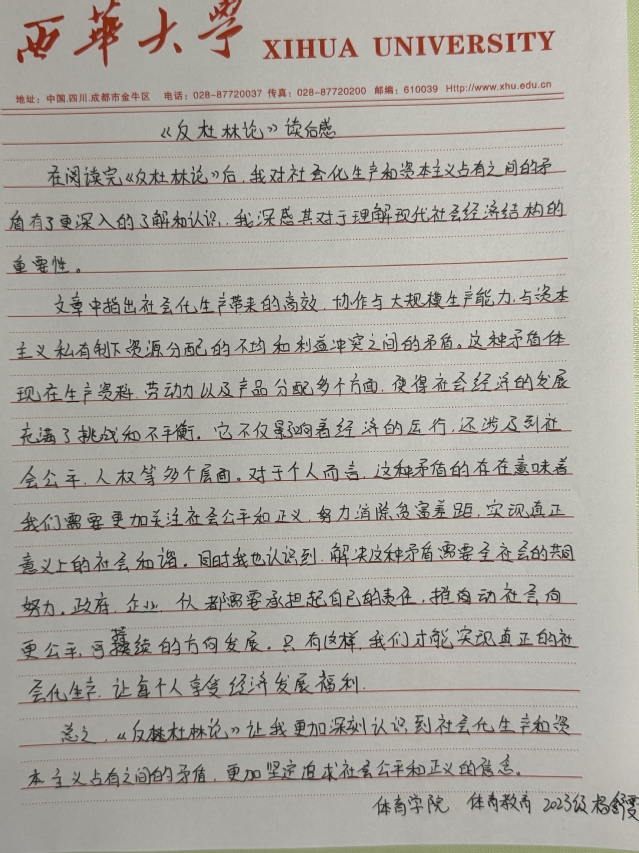 西華大學 XIHUA UNIVERSITY
地址：中国.四川.成都市金牛区 电话：028-87720037 传真：028-87720200 邮编：610039 Http://www.xhu.edu.cn
《反杜林论》读后感
在阅读完《反杜林论》后，我对社会化生产和资本主义占有之间的矛
盾有了更深入的了解和认识，我深感其对于理解现代社会经济结构的
重要性。
文章中指出社会化生产带来的高效、协作与大规模生产能力，与资本
主义私有制下资源分配的不均和利益冲突之间的矛盾。这种矛盾体
现在生产资料、劳动力以及产品分配多个方面，使得社会经济的发展
充满了挑战和不平衡。它不仅影响着经济的运行，还涉及到社
会公平、人权等多个层面。对于个人而言，这种矛盾的存在意味着
我们需要更加关注社会公平和正义，努力消除贫富差距，实现真正
意义上的社会和谐。同时我也认识到，解决这种矛盾需要全社会的共同
努力。政府、企业、个人都需要承担起自己的责任，推动社会向
更公平、可持续的方向发展。只有这样，我们才能实现真正的社
会化生产，让每个人享受经济发展福利。
总之，《反杜林论》让我更加深刻认识到社会化生产和资
本主义占有之间的矛盾，更加坚定追求社会公平和正义的信念。
体育学院 体育教育 2023级 杨